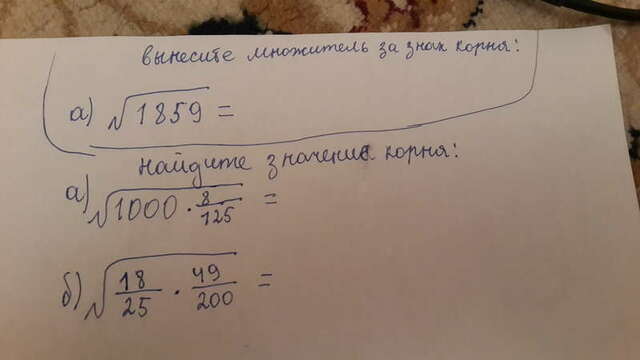 вынесите множитель за знак корня:
а) √1859 =
найдите значение корня:
а) √1000 · 8/125 =
б) √18/25 · 49/200 =